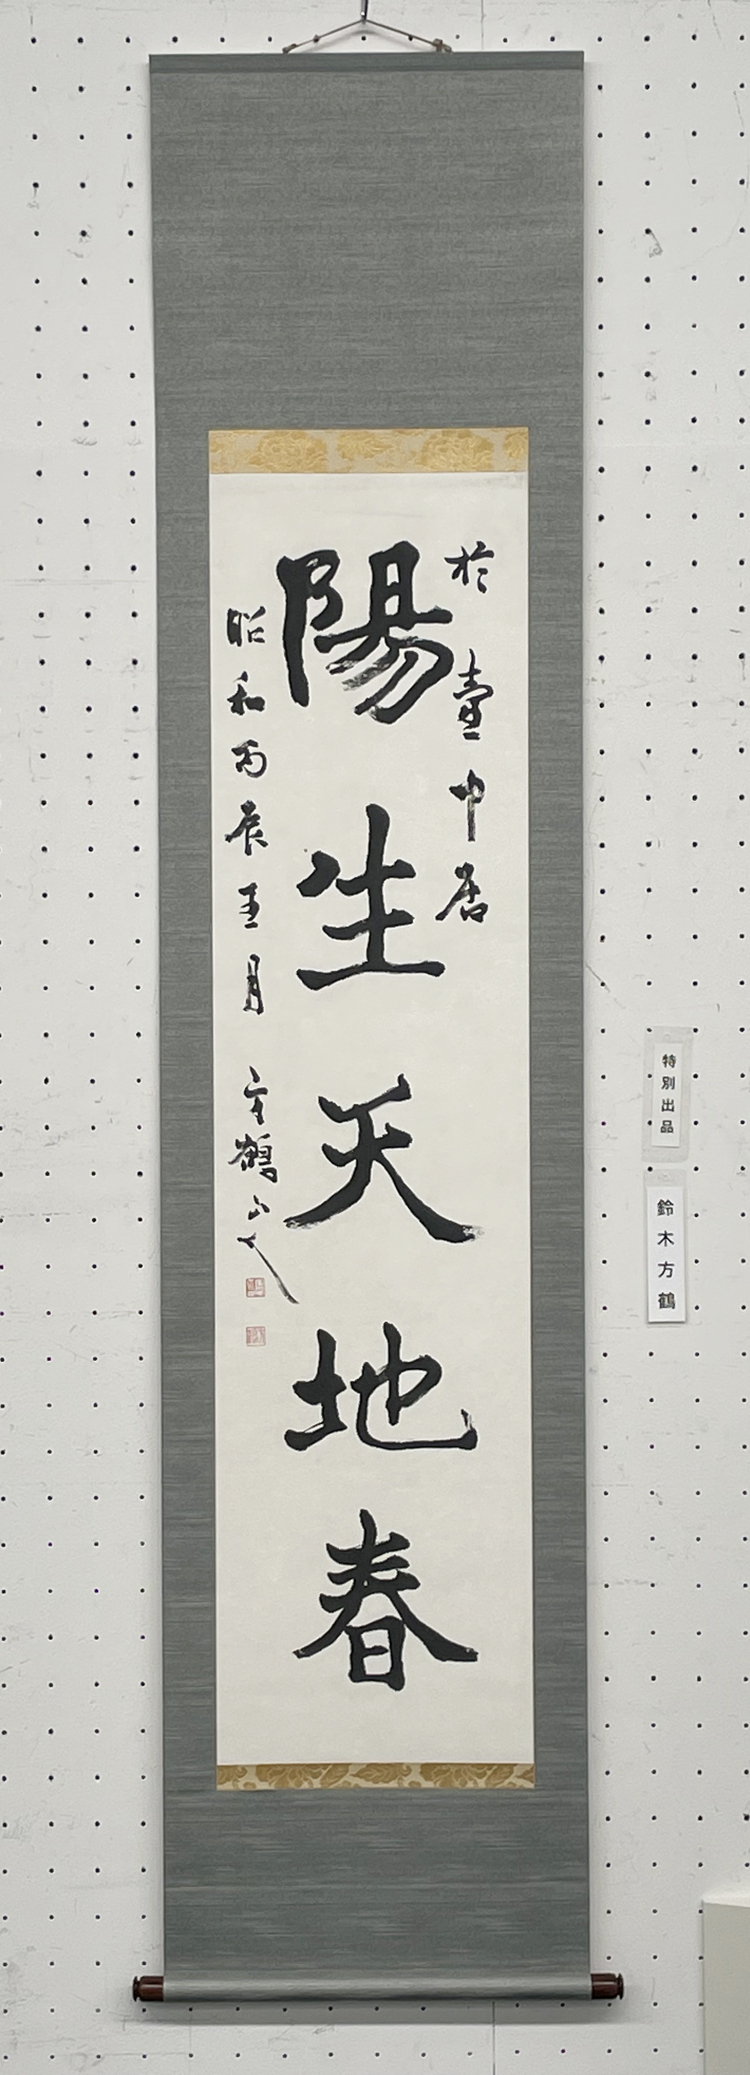 於壺中居
陽生天地春
昭和丙辰王月
方鶴山人
特別出品
鈴木方鶴